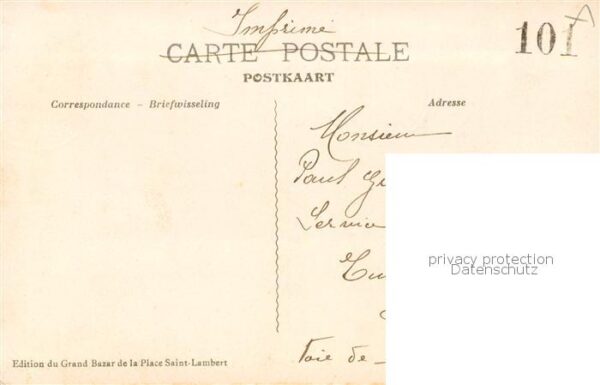 Imprimé
CARTE POSTALE
101
POSTKAART
Correspondance - Briefwisseling
Adresse
Monsieur
Paul
Service
privacy protection
Datenschutz
Voie de
Edition du Grand Bazar de la Place Saint-Lambert